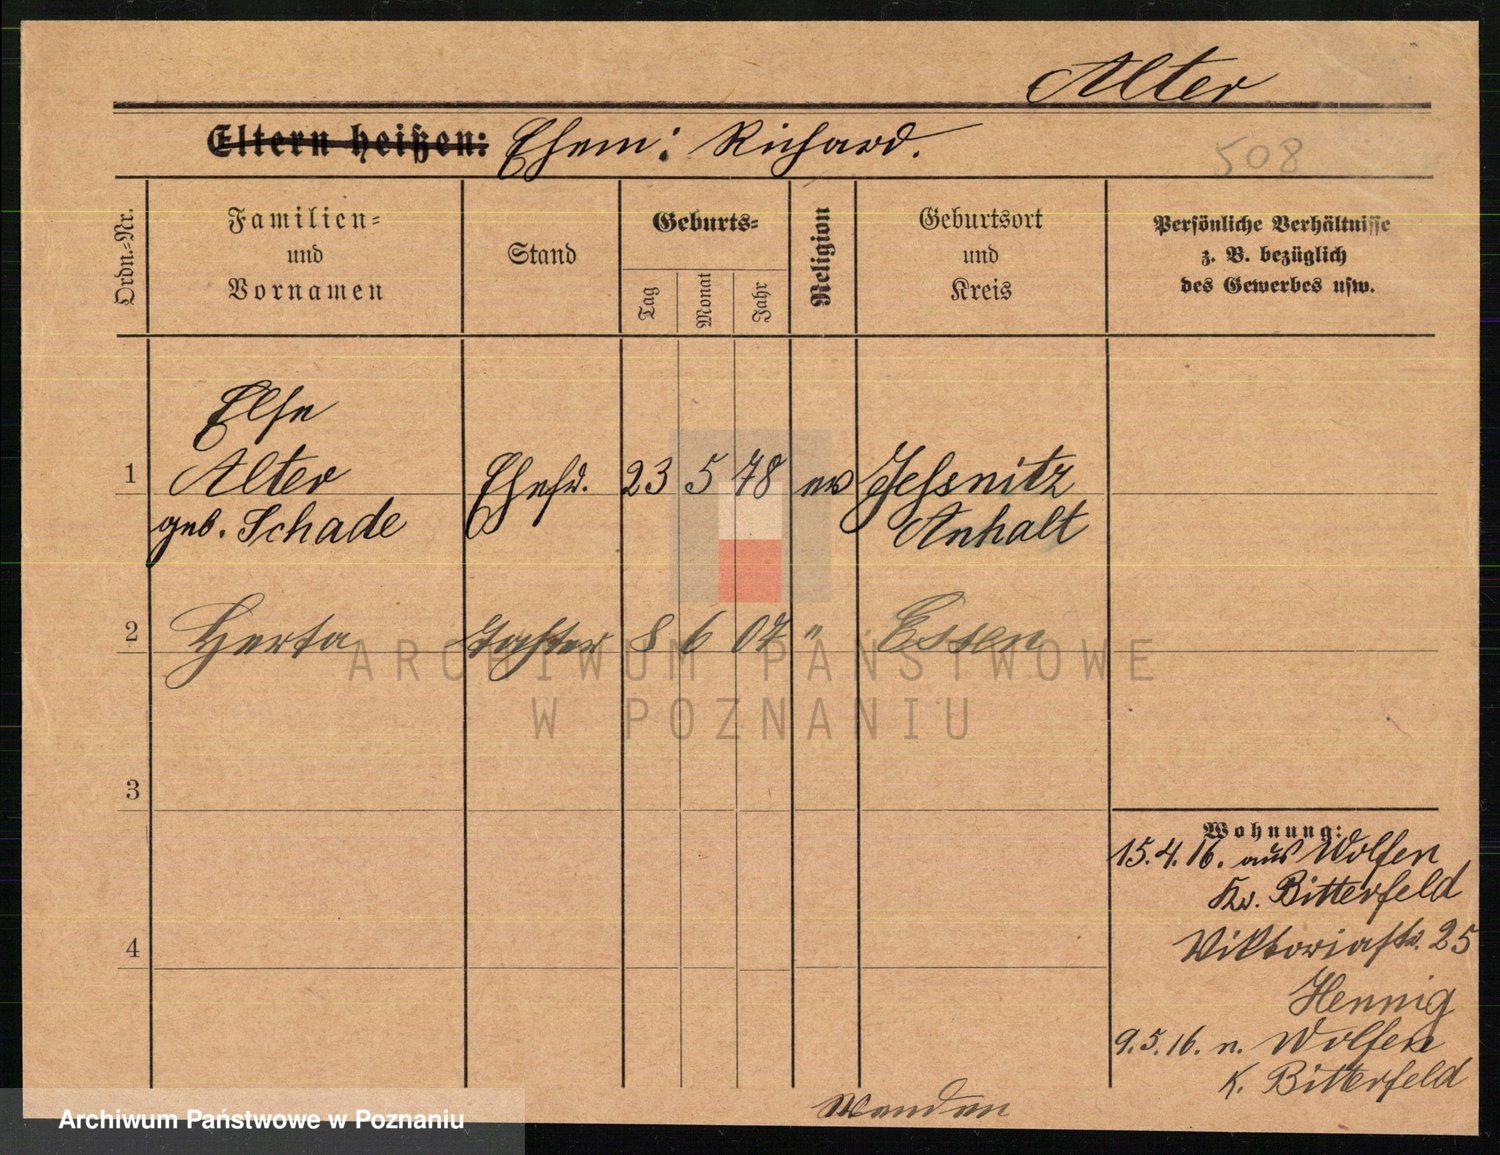 Alter
Eltern heißen: Ehem: Richard.
508
Ordn.-Nr.
Familien-
und
Vornamen
Stand
Geburts-
Tag
Monat
Jahr
Religion
Geburtsort
und
Kreis
Persönliche Verhältnisse
z. B. bezüglich
des Gewerbes usw.
Else
1 Alter Ehefr. 23 5 78 ev Jessnitz
geb. Schade Anhalt
2 Herta Tochter 8 6 07 " Essen
ARCHIWUM PAŃSTWOWE
W POZNANIU
3
Wohnung:
15.4.16. aus Wolfen
Kr. Bitterfeld
4
Viktoriastr. 25
Hennig
9.5.16. n. Wolfen
K. Bitterfeld
Wenden
Archiwum Państwowe w Poznaniu